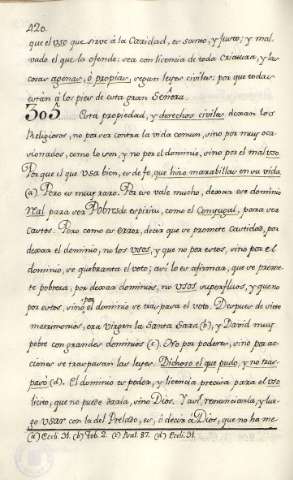 420.
que el uso que sirve à la Caridad, es santo, y justo; y mal-
vado el que la ofende: sea con licencia de toda Criatura, y las
cosas agenas, ò propias, segun leyes civiles: por que todas
estàn à los pies de esta gran Señora.
303 Esta propiedad, y derechos civiles dexan los
Religiosos, no por ser contra la vida comun, sino por muy oca-
sionados, como lo son, y no por el dominio, sino por el mal uso.
Por que el que usa bien, es de fe, que hizo marabillas en su vida
(a). Pero es muy raro. Por eso vale mucho, dexar ese dominio
real para ser Pobres de espiritu, como el Conyugal, para ser
castos. Pero como es error, decir que se promete castidad, por
dexar el dominio, no los usos, y que no por estos, sino por el
dominio, se quebranta el voto; asi lo es afirmar, que se prome-
te pobreza, por dexar dominios, no usos superfluos, y que no
por estos, sino por el dominio se traspasa el voto. Despues de siete
matrimonios, era Virgen la Santa Sara (b), y David muy
pobre con grandes dominios (c). No por poderes, sino por ac-
ciones se traspasan las leyes. Dichoso el que pudo, y no tras-
pasò (d). El dominio es poder, y licencia precisa para el uso
licito, que no puede darla, sino Dios. Y asi renunciarla, y lue-
go usar con la del Prelado, es, ò decir à Dios, que no ha me-
(a) Eccli. 31. (b) Tob. 2. (c) Psal. 87. (d) Eccli. 31.